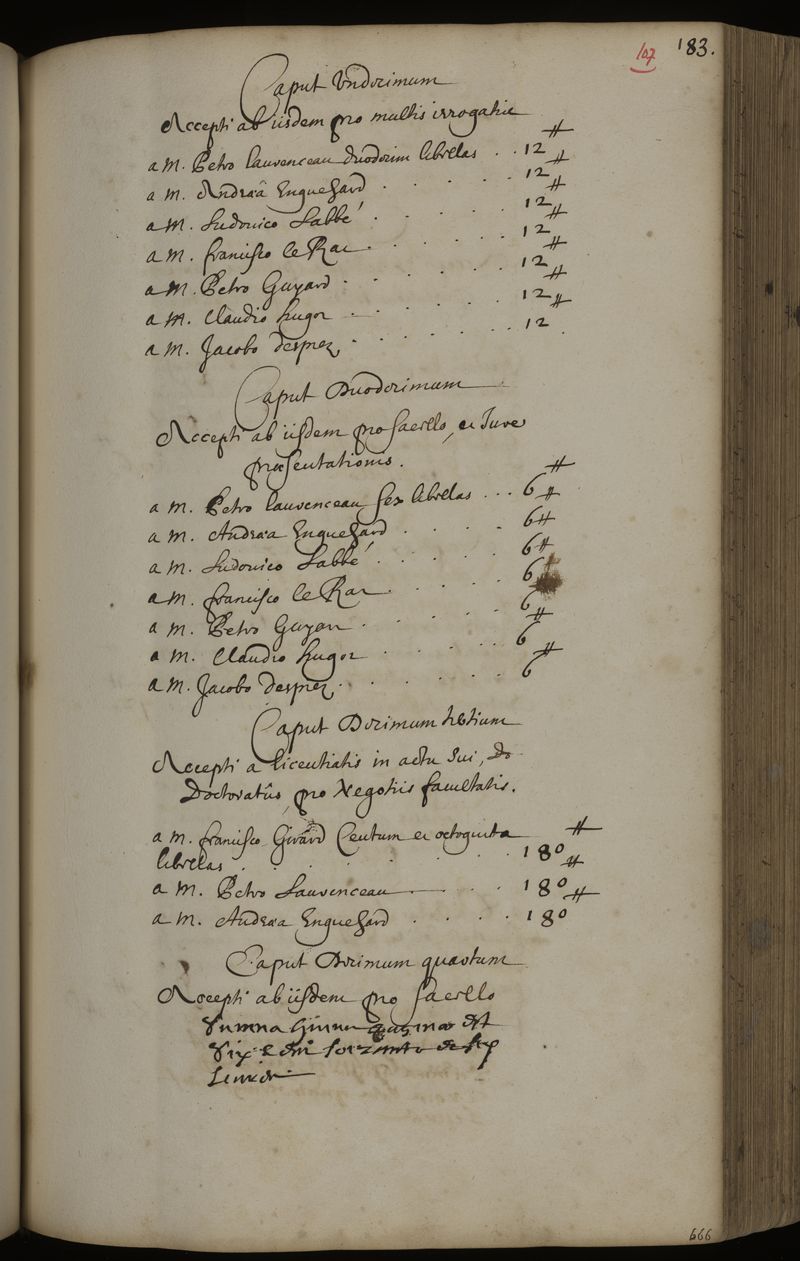 107 183.
Caput Undecimum
Accepti ab iisdem pro multis irrogatis
a M. Petro Lauvenceau duodecim libellas . . 12 ⧺
a M. Andræâ Enguehard . . . . . 12 ⧺
a M. Ludovico Labbé . . . . . 12 ⧺
a M. francisco le Rat . . . . . 12 ⧺
a M. Petro Guyard . . . . . 12 ⧺
a M. Claudio hugot . . . . . 12 ⧺
a M. Jacobo desprez . . . . . 12 ⧺
Caput Duodecimum
Accepti ab iisdem pro sacello, et Jure
præsentationis.
a M. Petro Lauvenceau sex libellas . . . 6 ⧺
a M. Andræa Enguehard . . . . 6 ⧺
a M. Ludovico Labbé . . . . . 6 ⧺
a M. francisco le Rat . . . . 6 ⧺
a M. Petro Guyar . . . . . 6
a M. Claudio hugot . . . . . 6 ⧺
a M. Jacobo desprez . . . . . 6 ⧺
Caput Decimum tertium
Accepti a licentiatis in actu sui, Do
Doctoratûs, pro Negotiis facultatis.
a M. francisco Girard Centum et octoginta
libellas . . . . . . 180 ⧺
a M. Petro Lauvenceau . . . 180 ⧺
a M. Andræa Enguehard . . . . 180 ⧺
Caput Decimum quartum
Accepti ab iisdem pro sacello
Summa
666